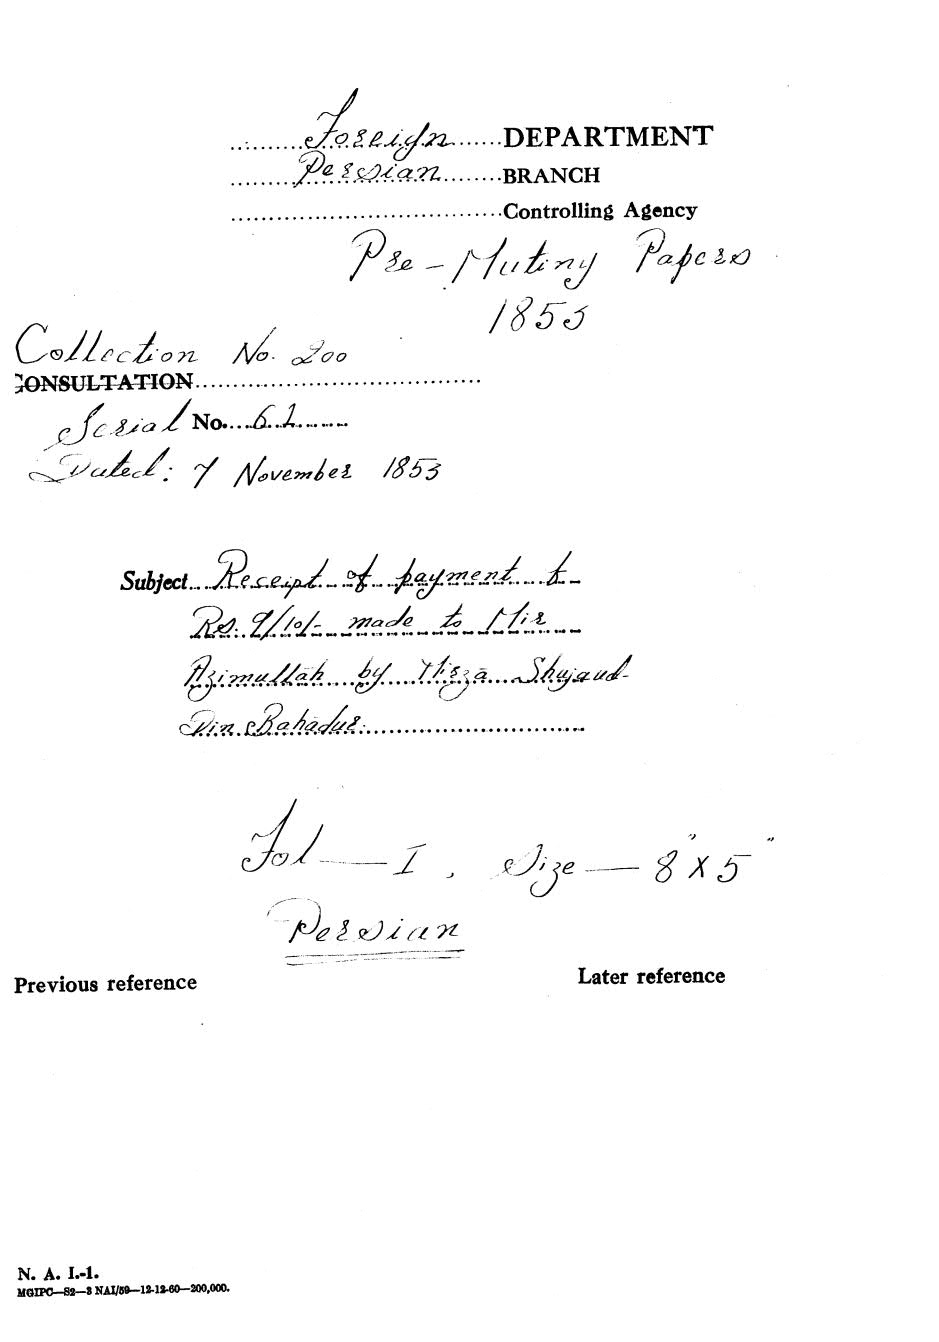 Foreign DEPARTMENT
Persian BRANCH
Controlling Agency
Pre-Mutiny Papers
1853
Collection No. 200
CONSULTATION
Serial No. 62
Dated: 7 November 1853
Subject Receipt of payment of
Rs. 9/10/- made to Mir
Azimullāh by Mirzā Shujaud-
Din Bahadur.
Fol — I, Size — 8" X 5"
Persian
Previous reference
Later reference
N. A. I.-1.
MGIPC—S2—3 NAI/59—12-12-60—200,000.